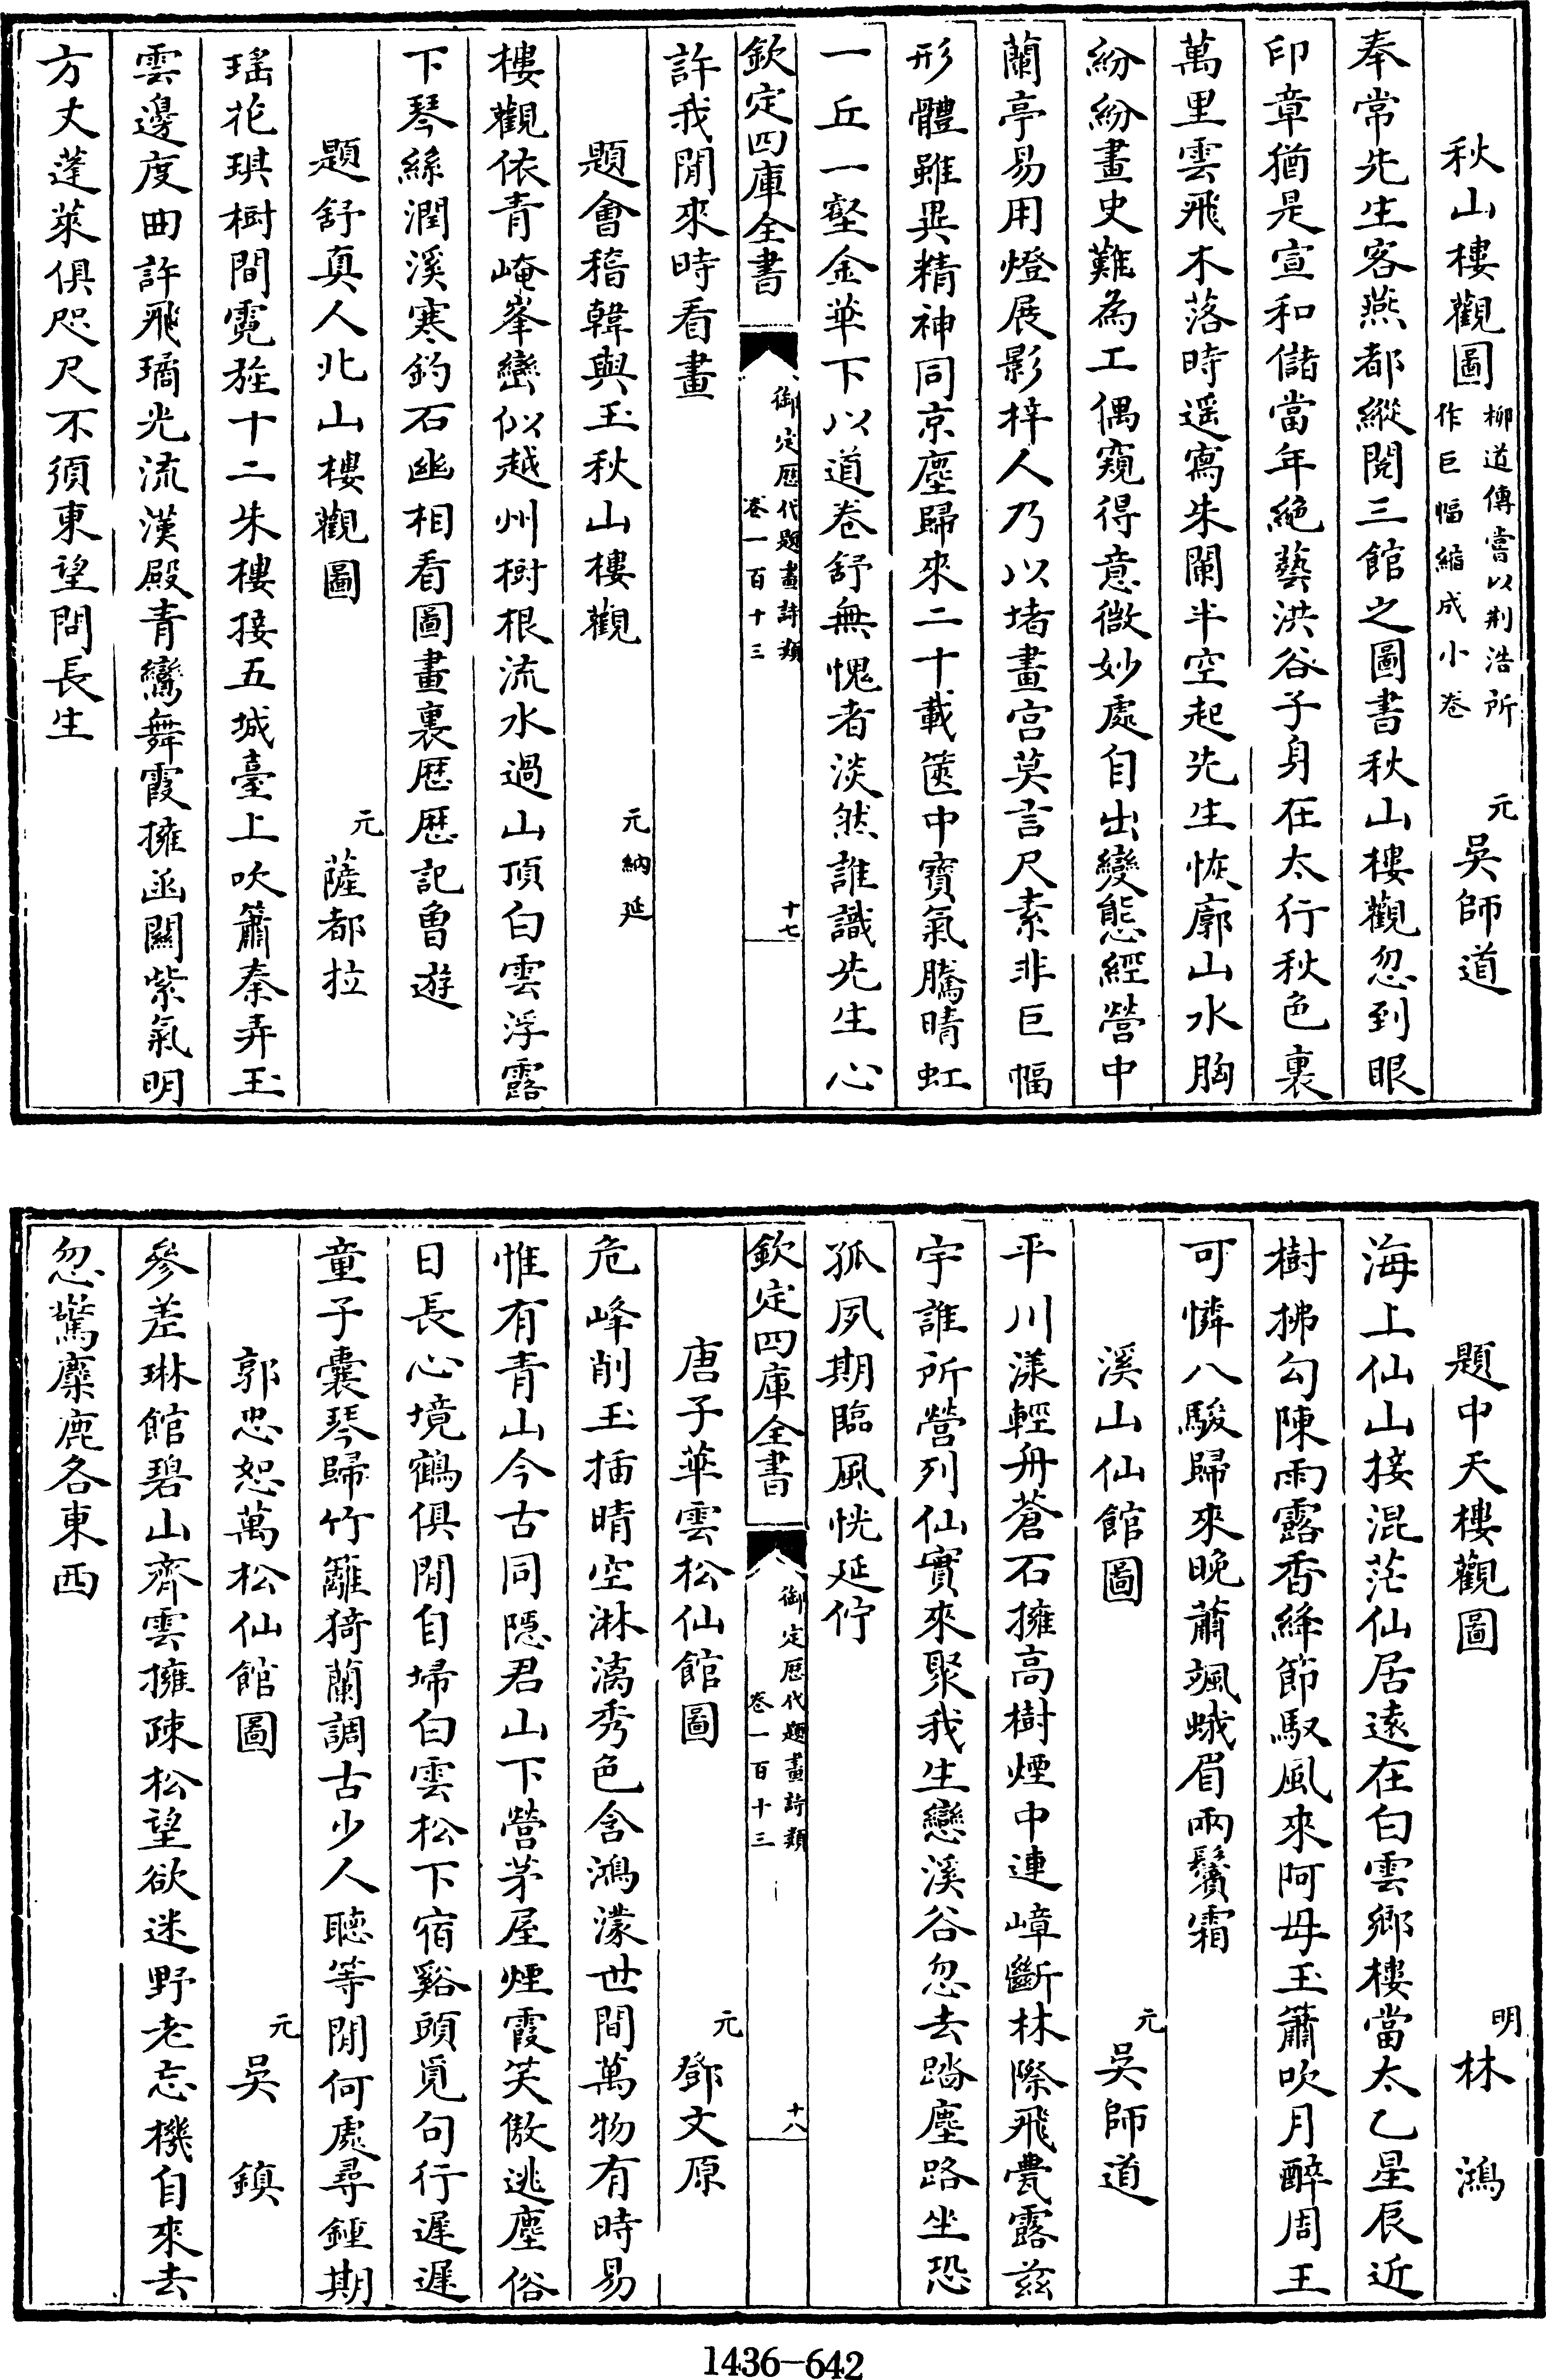 秋山樓觀圖 柳道傳嘗以荆浩所作巨幅縮成小卷 元 吳師道
奉常先生客燕都縱閱三館之圖書秋山樓觀忽到眼
印章猶是宣和儲當年絶藝洪谷子身在太行秋色裏
萬里雲飛木落時遥寫朱闌半空起先生恢廓山水胸
紛紛畫史難為工偶窺得意微妙處自出變態經營中
蘭亭易用燈展影梓人乃以堵畫宫莫言尺素非巨幅
形體雖異精神同京塵歸來二十載篋中寶氣騰晴虹
一丘一壑金華下以道卷舒無愧者淡然誰識先生心
欽定四庫全書 御定歷代題畫詩類 卷一百十三 十七
許我閒來時看畫
題會稽韓與玉秋山樓觀 元 納延
樓觀依青崦峯巒似越州樹根流水過山頂白雲浮露
下琴絲潤溪寒釣石幽相看圖畫裏歷歷記曽遊
題舒真人北山樓觀圖 元 薩都拉
瑶花琪樹間霓旌十二朱樓接五城臺上吹簫秦弄玉
雲邊度曲許飛璚光流漢殿青鸞舞霞擁函關紫氣明
方丈蓬萊俱咫尺不須東望問長生
題中天樓觀圖 明 林鴻
海上仙山接混茫仙居遠在白雲鄉樓當太乙星辰近
樹拂勾陳雨露香絳節馭風來阿母玉簫吹月醉周王
可憐八駿歸來晚蕭颯蛾眉兩鬢霜
溪山仙館圖 元 吳師道
平川漾輕舟蒼石擁高樹煙中連嶂斷林際飛甍露兹
宇誰所營列仙實來聚我生戀溪谷忽去踏塵路坐恐
孤夙期臨風恍延佇
欽定四庫全書 御定歷代題畫詩類 卷一百十三 十八
唐子華雲松仙館圖 元 鄧文原
危峰削玉插晴空淋漓秀色含鴻濛世間萬物有時易
惟有青山今古同隱君山下營茅屋煙霞笑傲逃塵俗
日長心境鶴俱閒自埽白雲松下宿谿頭覓句行遲遲
童子囊琴歸竹籬猗蘭調古少人聽等閒何處尋鍾期
郭忠恕萬松仙館圖 元 吳鎮
參差琳館碧山齊雲擁疎松望欲迷野老忘機自來去
忽驚麋鹿各東西
1436-642